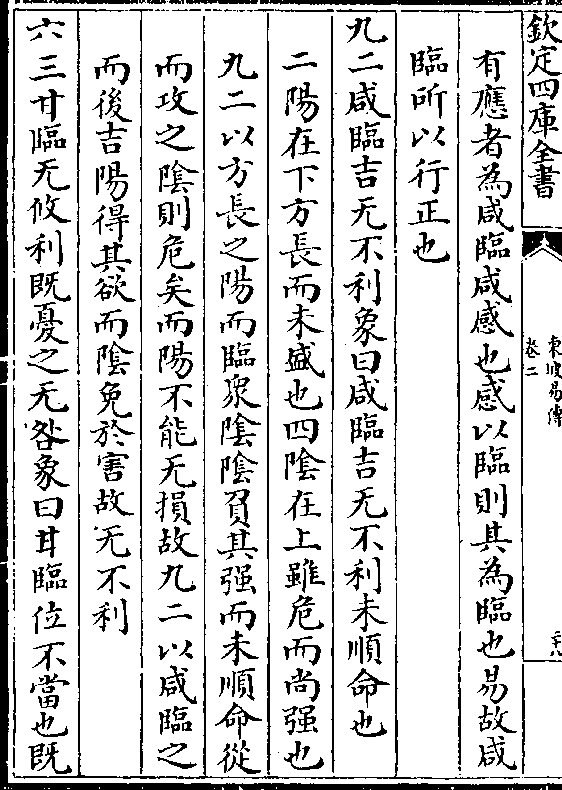 欽定四庫全書
東坡易傳
卷二
二十八
有應者為咸臨咸感也感以臨則其為臨也易故咸
臨所以行正也
九二咸臨吉无不利象曰咸臨吉无不利未順命也
二陽在下方長而未盛也四陰在上雖危而尚强也
九二以方長之陽而臨衆陰陰負其强而未順命從
而攻之陰則危矣而陽不能无損故九二以咸臨之
而後吉陽得其欲而陰免於害故无不利
六三甘臨无攸利既憂之无咎象曰甘臨位不當也既